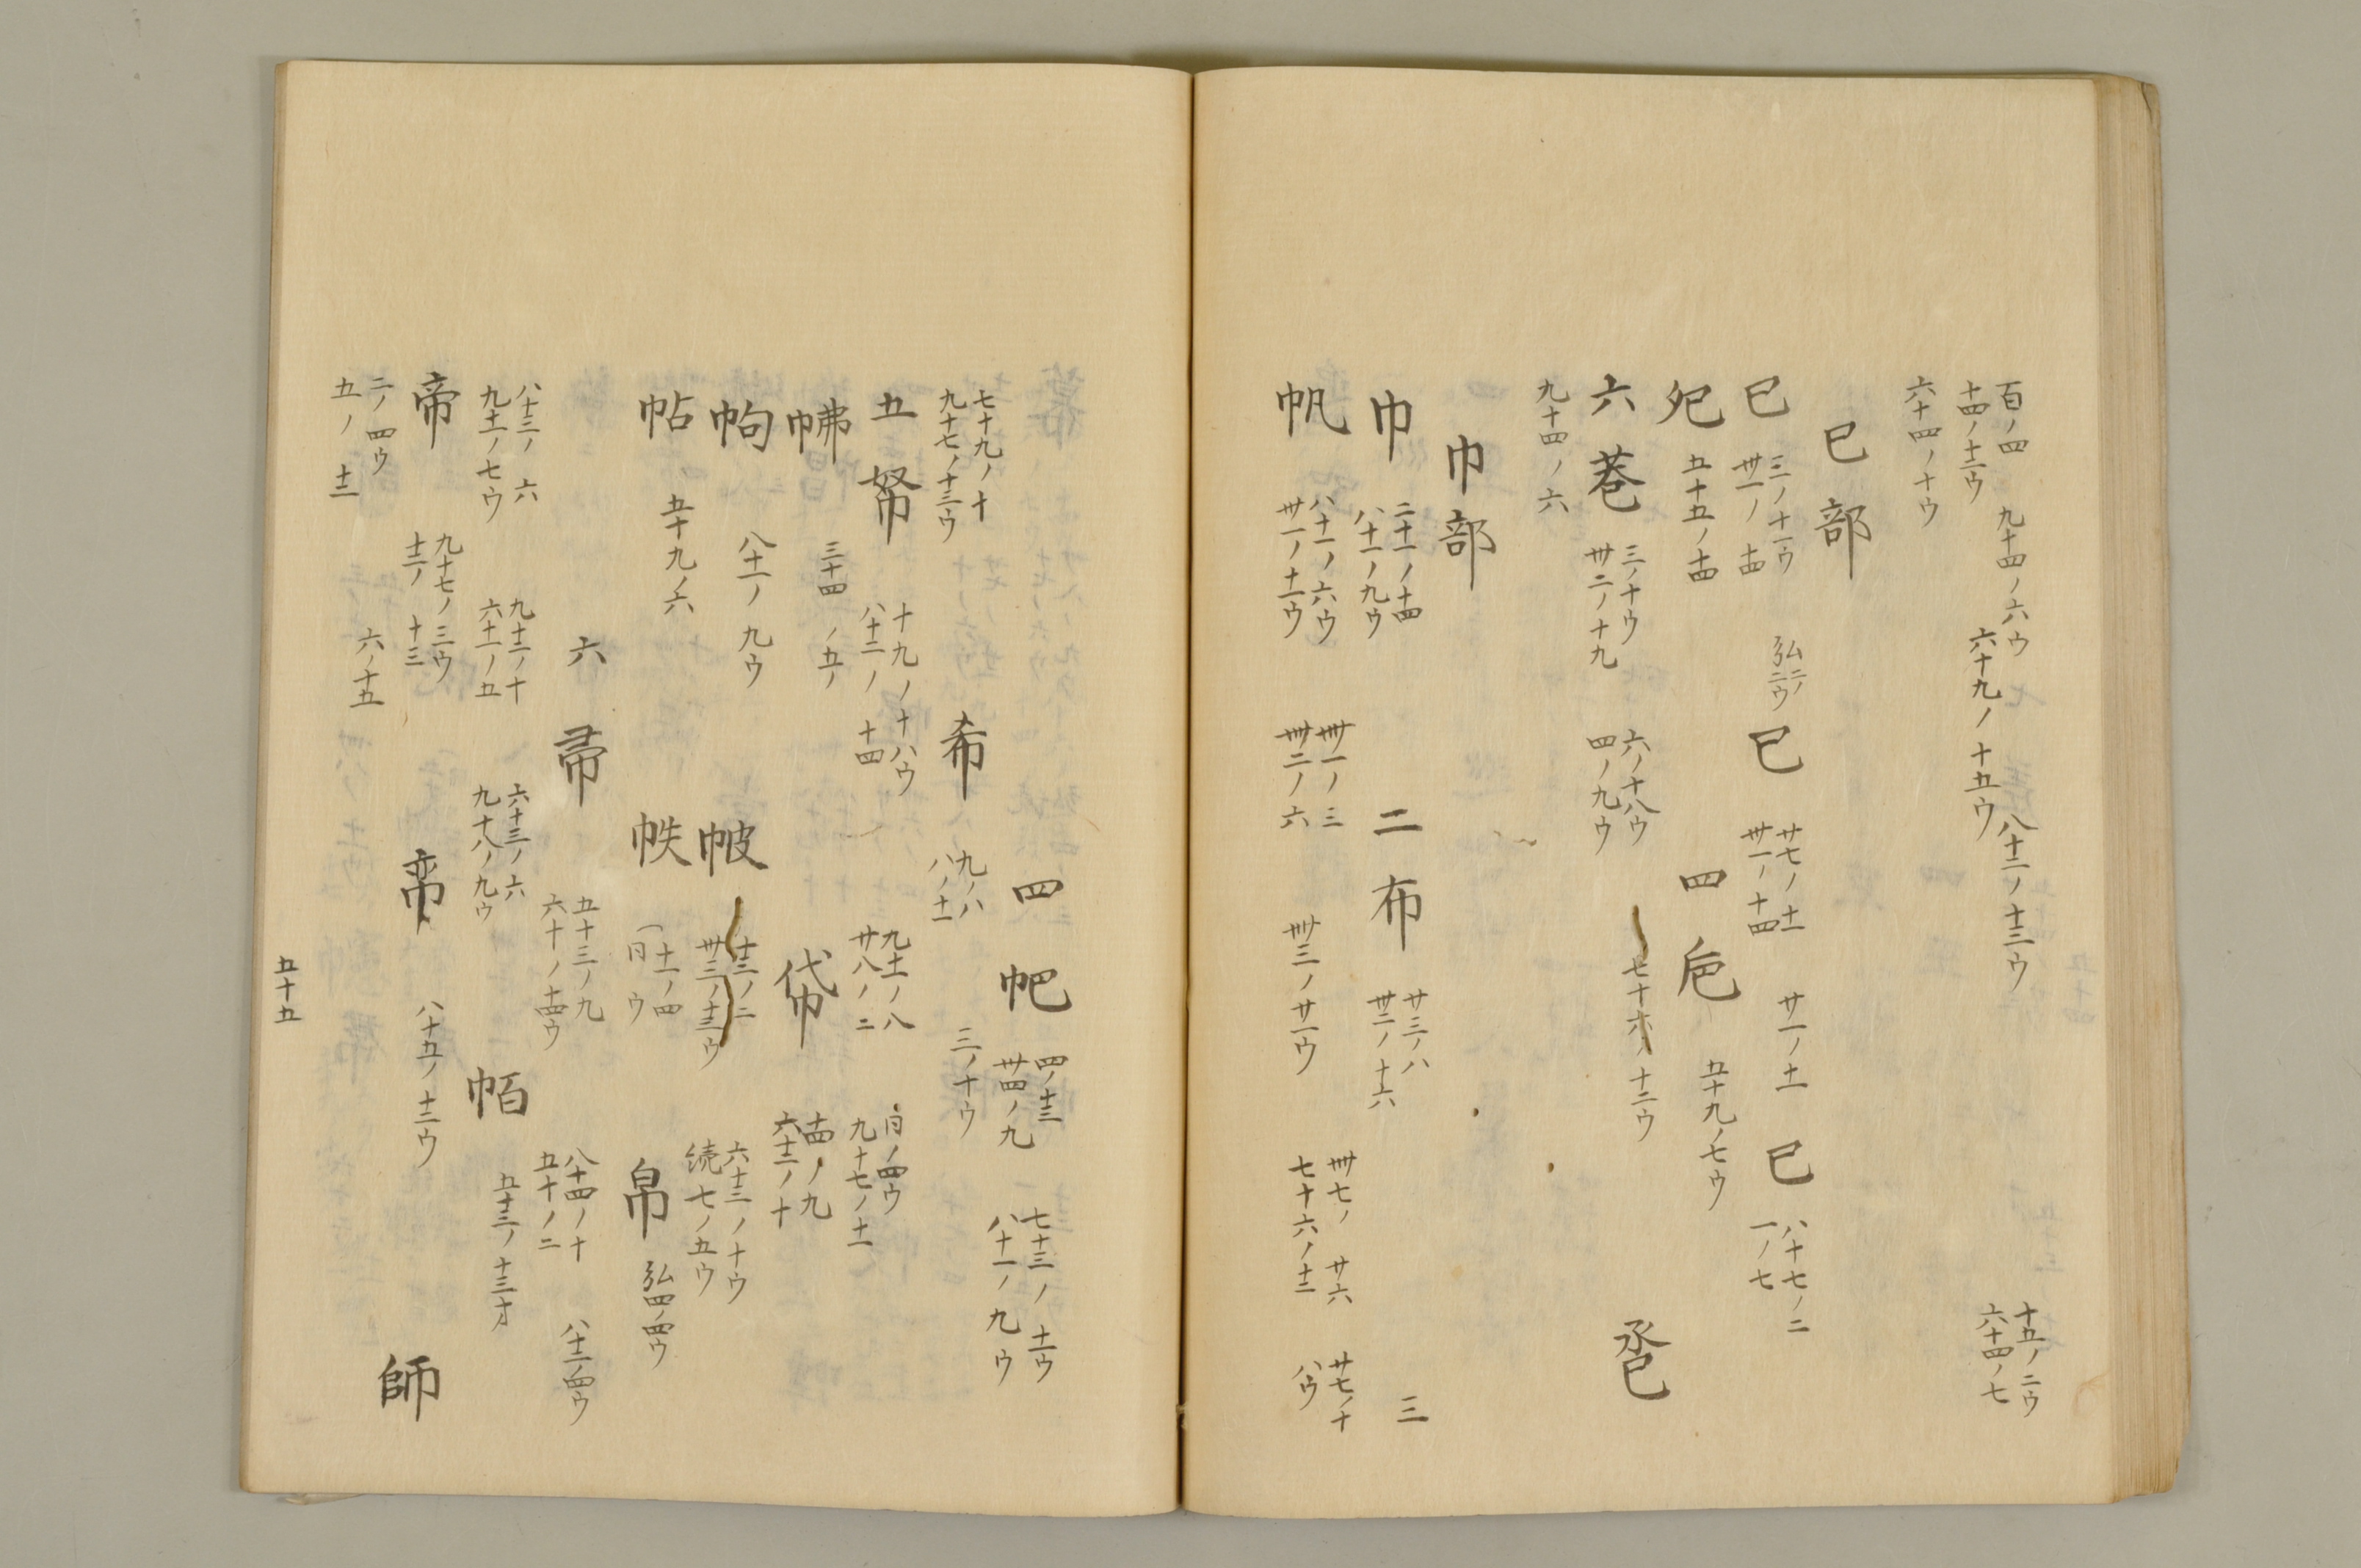 百ノ四 九十四ノ六ウ 八十二ノ十三ウ 十五ノ二ウ
十四ノ十二ウ 六十九ノ十五ウ 六十四ノ七
六十四ノ十ウ
巳部
巳 三ノ十一ウ 卅一ノ十四 弘二ノ二ウ 巳 廿七ノ十一 卅一ノ十四 廿一ノ十一 巳 八十七ノ二 一ノ七
夗 五十五ノ十四 四 巵 五十九ノ七ウ
六 巷 三ノ十ウ 卅二ノ十九 六ノ十八ウ 四ノ九ウ 七十六ノ十二ウ 巹
九十四ノ六
巾部
巾 二十一ノ十四 八十一ノ九ウ 二 布 廿三ノ八 卅二ノ十六 三
帆 八十一ノ六ウ 卅一ノ十一ウ 卌一ノ三 卌二ノ六 卌三ノ廿一ウ 卌七ノ廿六 七十六ノ十二 廿七ノ十 八ウ
四 帊 四ノ十三 卅四ノ九 七十三ノ十一ウ 八十一ノ九ウ
七十九ノ十 九十七ノ十三ウ 希 九ノ八 八ノ十一 三ノ十ウ
五 帑 十九ノ十八ウ 八十二ノ十四 九十一ノ八 廿八ノ二 百ノ四ウ 九十七ノ十一
帗 三十四ノ五 帒 十四ノ九 六十二ノ十
帕 八十一ノ九ウ 帔 十三ノ二 卅三ノ十三ウ 六十三ノ十ウ 続七ノ五ウ
帖 五十九ノ六 帙 十一ノ四 帛 弘四ノ四ウ
六 帚 五十三ノ九 六十ノ十四ウ 八十四ノ十 五十ノ二 八十二ノ四ウ
八十三ノ六 九十一ノ七ウ 九十二ノ十 六十一ノ五 六十三ノ六 九十八ノ九ウ 帞 五十三ノ十三オ
帝 九十七ノ三ウ 十二ノ十三 帟 八十五ノ十二ウ 師
二ノ四ウ 五ノ十二 六ノ十五
五十五